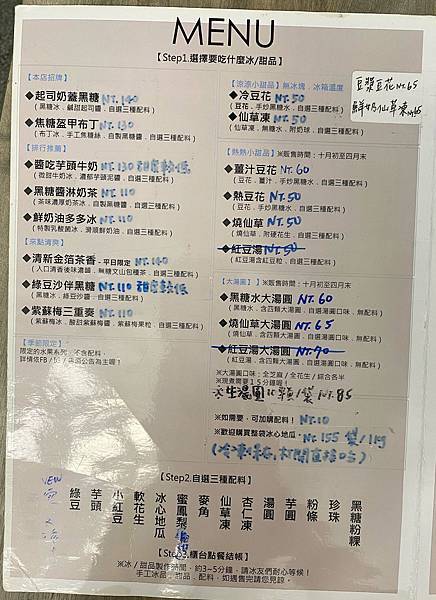 MENU
【Step1.選擇要吃什麼冰/甜品】
【本店招牌】
◆起司奶蓋黑糖 NT.140
（黑糖冰．鹹甜起司醬．自選三種配料）
◆焦糖盔甲布丁 NT.130
（布丁冰．手工焦糖絲．自製黑糖醬．自選三種配料）
【排行推薦】
◆醬吃芋頭牛奶 NT.130
（微甜牛奶冰．濃郁芋頭泥醬．自選三種配料）
◆黑糖醬淋奶茶 NT.110
（茶味濃厚奶茶冰．自製黑糖醬．自選三種配料）
◆鮮奶油多多冰 NT.110
（特製乳酸菌冰．滑順鮮奶油．自選三種配料）
【來點清爽】
◆清新金箔茶香-平日限定 NT.140
（入口清香後味濃韻．無糖文山包種茶．自選三種配料）
◆綠豆沙伴黑糖 NT.110
（黑糖冰．綠豆沙醬．自選三種配料）
◆紫蘇梅三重奏 NT.110
（紫蘇梅冰．酸甜紫蘇梅醬．紫蘇梅果粒．自選三種配料）
【季節限定】
限定的水果系列，不含配料。
詳情依FB/IG/店內公告為主喔！
【涼涼小甜品】無冰塊．冰箱溫度
◆冷豆花 NT.50
（豆花．手炒黑糖水．自選三種配料）
◆仙草凍 NT.50
（仙草凍．無糖水．附奶球．自選三種配料）
豆漿豆花NT.65
鮮奶仙草凍NT.65
【熱熱小甜品】※販售時間：十月初至四月末
◆薑汁豆花 NT.60
（豆花．薑汁．手炒黑糖水．自選三種配料）
◆熱豆花 NT.50
（豆花．手炒黑糖水．自選三種配料）
◆燒仙草 NT.50
（燒仙草．附硬花生．自選三種配料）
◆紅豆湯 NT.50
（紅豆湯含紅豆粒．自選三種配料）
【大湯圓】※販售時間：十月初至四月末
◆黑糖水大湯圓 NT.60
（黑糖水．含四顆大湯圓．自選湯圓口味．無配料）
◆燒仙草大湯圓 NT.65
（燒仙草．含四顆大湯圓．自選湯圓口味．無配料）
◆紅豆湯大湯圓 NT.70
（紅豆湯．含四顆大湯圓．自選湯圓口味．無配料）
※大湯圓口味：全芝麻/全花生/綜合各半
※現煮需要15分鐘喔！
※生湯圓12顆/袋 NT.85
※如需要，可加購配料！ NT.10
※歡迎購買整袋冰心地瓜 NT.155 袋/1kg
【Step2.自選三種配料】
綠豆
芋頭
小紅豆
軟花生
冰心地瓜
蜜鳳梨
麥角
仙草凍
杏仁凍
湯圓
芋圓
粉條
珍珠
黑糖粉粿
【Step3.櫃台點餐結帳】
※冰/甜品製作時間，約3~5分鐘，請冰友們耐心等候！
手工冰品、甜品、配料，如遇售完請您見諒。